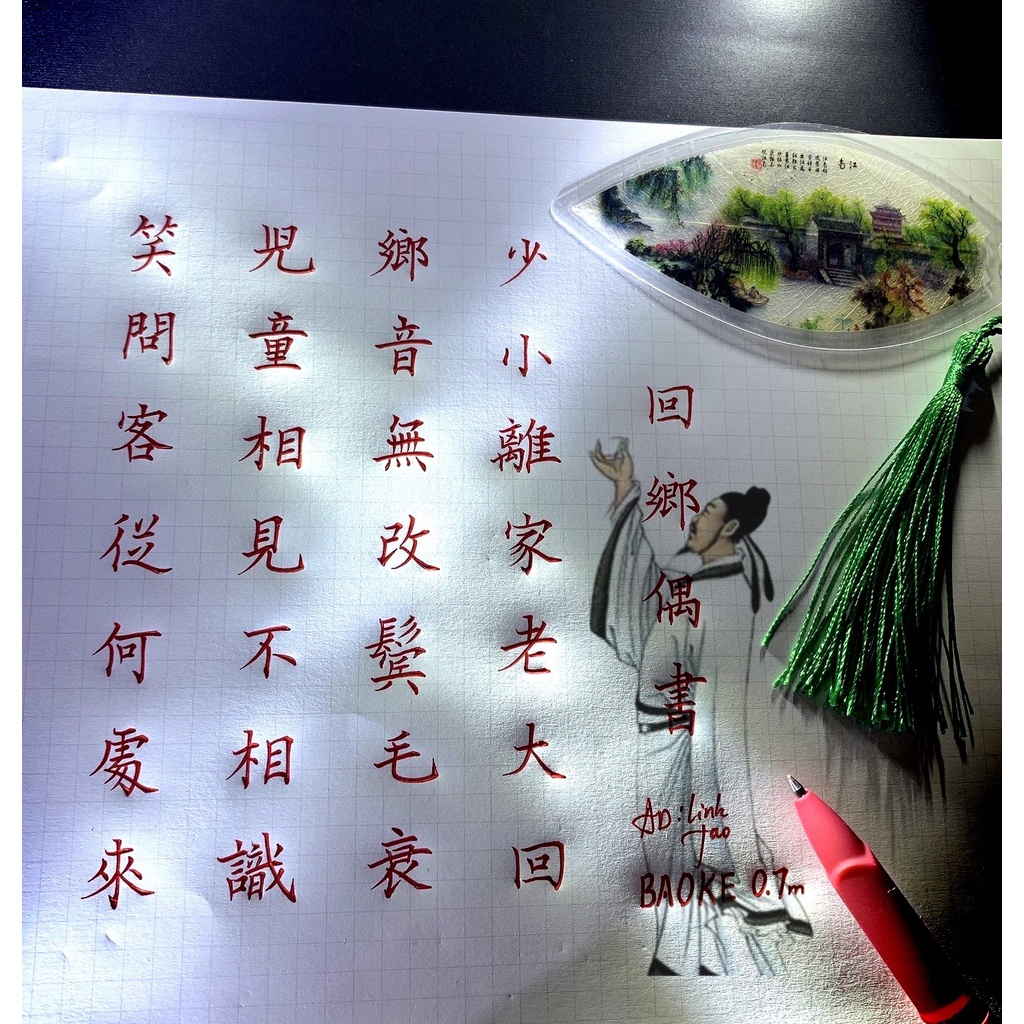 江南
回鄉偶書
少小離家老大回
鄉音無改鬢毛衰
児童相見不相識
笑問客従何處來
AD: Linh
Tao
BAOKE 0.7m